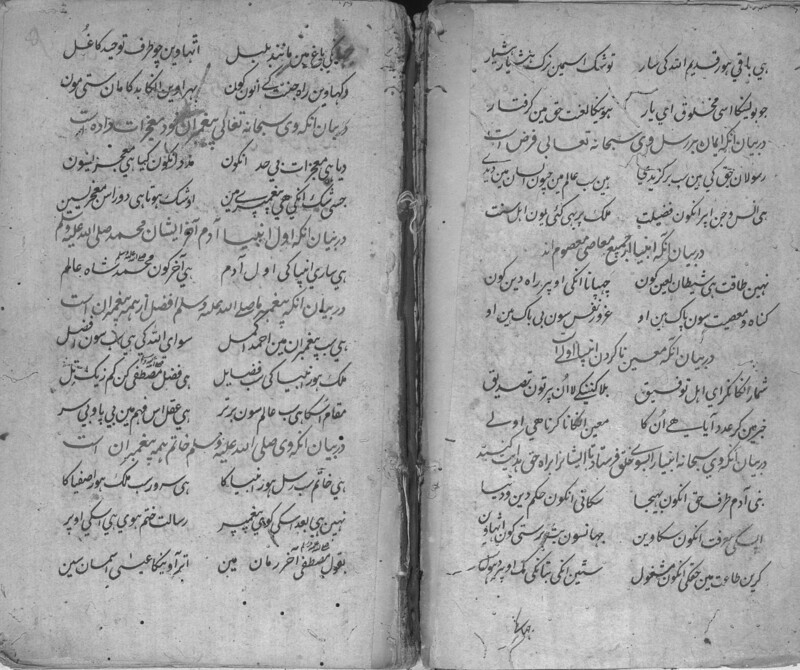 ہی باقی ہور قدیم اللہ کی سار توشک اسمین ترک نہ ہشیار
جو بولیگا اسی مخلوق ای یار ہویگا لعنت حق مین گرفتار
در بیان آنکہ ایمان بر رسل وی سبحانہ تعالی فرض است
رسولان حق کی ہین سب برگزیدی ہین سب عالم مین جیون انسان مین دیدی
ہی انس و جن اپر انکون فضیلت ملک پر بھی کتی یون اہل سنت
در بیان آنکہ انبیا از جمیع معاصی معصوم اند
نہین طاقت ہی شیطان لعین کون چھپانا انکی اوپر راہ دین کون
گناہ و معصیت سون پاک ہین او غرور نفس سون بی باک ہین او
در بیان آنکہ معین ناکردن انبیا اولی است
شمار انکا نکر ای اہل توفیق بلا گننے لا اُن پر تون تصدیق
خبر مین گر عدد آیا ہے اُن کا معین انکا نا کرنا ہی اولے
در بیان آنکہ وی سبحانہ انبیا را بسوی خلق فرستاد تا ایشان را براہ حق ہدایت کنند
بنی آدم طرف حق انکون بھیجا سکاتی انکون حکم دین و دنیا
معرفت انکون سکاوین جہان سون بت پرستی کون اتھاوین
کرین طاعت مین حقکی انکون مشغول
کی باغ مین مانند بلبل اتھاوین چو طرف توحید کا غل
دکھاوین راہ جنت کے انون کون
در بیان آنکہ وی سبحانہ تعالی پیغمبران خود معجزات دادہ است
دیا ہی معجزات بی حد انکون مدد انکون کیا ہی معجز یسون
جسی شک انکی ہی پیغمبری مین او شک ہوتا ہی دور اس معجز یسین
در بیان آنکہ اول انبیا آدم آخر ایشان محمد صلی اللہ علیہ وسلم
ہی ساری انبیا کی اول آدم ہی آخر کون محمد شاہ عالم
در بیان آنکہ پیغمبر ما صلی اللہ علیہ وسلم افضل از ہمہ پیغمبران است
ہی سب پیغمبران مین احمد اکمل سوای اللہ کی ہی سب سون افضل
ملک ہور انبیا کی سب فضایل ہی فضل مصطفی کن کم زیک تل
مقام اسکا ہی سب عالم سون برتر ہی عقل اس فہم مین بی پا و بی سر
در بیان آنکہ وی صلی اللہ علیہ وسلم خاتم ہمہ پیغمبران است
ہی خاتم سب رسل ہور انبیا کا ہی سرور سب ملک ہور اصفیا کا
نہین ہی بعد اسکی کوئی پیغمبر رسالت ختم ہوی ہی اسکی اوپر
بقول مصطفی آخر زمان مین اتر آویگا عیسی اسمان سین